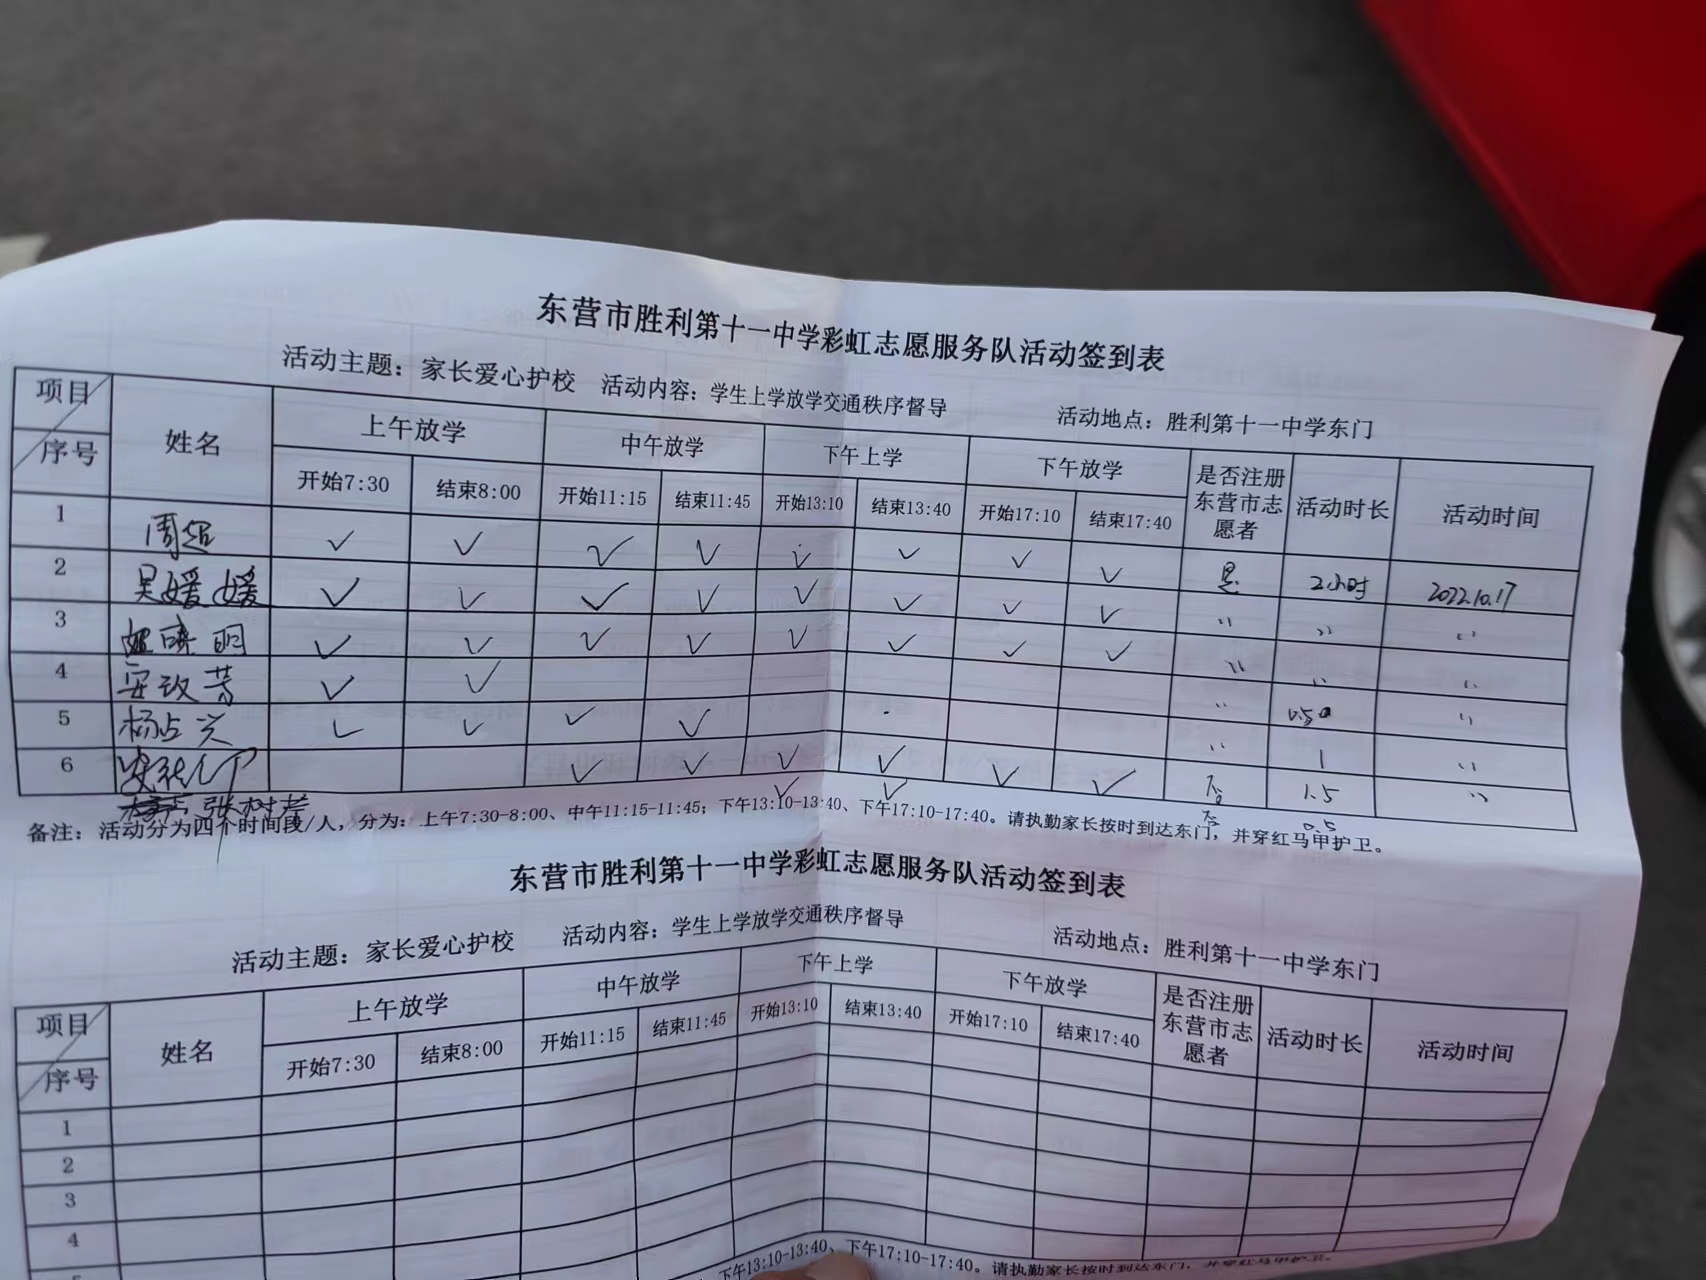 东营市胜利第十一中学彩虹志愿服务队活动签到表
活动主题：家长爱心护校 活动内容：学生上学放学交通秩序督导 活动地点：胜利第十一中学东门
项目 序号 姓名 上午放学 中午放学 下午上学 下午放学 是否注册东营市志愿者 活动时长 活动时间
开始7:30 结束8:00 开始11:15 结束11:45 开始13:10 结束13:40 开始17:10 结束17:40
1 周超 ✓ ✓ ✓ ✓ ✓ ✓ ✓ ✓ 是 2小时 2022.10.17
2 吴媛媛 ✓ ✓ ✓ ✓ ✓ ✓ ✓ ✓ 〃 〃 〃
3 晓明 ✓ ✓ ✓ ✓ ✓ ✓ ✓ ✓ 〃 〃 〃
4 安玫芳 ✓ ✓ 〃 0.5 〃
5 杨占兴 ✓ ✓ ✓ ✓ 〃 1 〃
6 ✓ ✓ ✓ ✓ ✓ ✓ 否 1.5 〃
张树 ✓ ✓ 否 0.5
备注：活动分为四个时间段/人，分为：上午7:30-8:00、中午11:15-11:45；下午13:10-13:40、下午17:10-17:40。请执勤家长按时到达东门，并穿红马甲护卫。
东营市胜利第十一中学彩虹志愿服务队活动签到表
活动主题：家长爱心护校 活动内容：学生上学放学交通秩序督导 活动地点：胜利第十一中学东门
项目 序号 姓名 上午放学 中午放学 下午上学 下午放学 是否注册东营市志愿者 活动时长 活动时间
开始7:30 结束8:00 开始11:15 结束11:45 开始13:10 结束13:40 开始17:10 结束17:40
1
2
3
4
下午13:10-13:40、下午17:10-17:40。请执勤家长按时到达东门，并穿红马甲护卫。